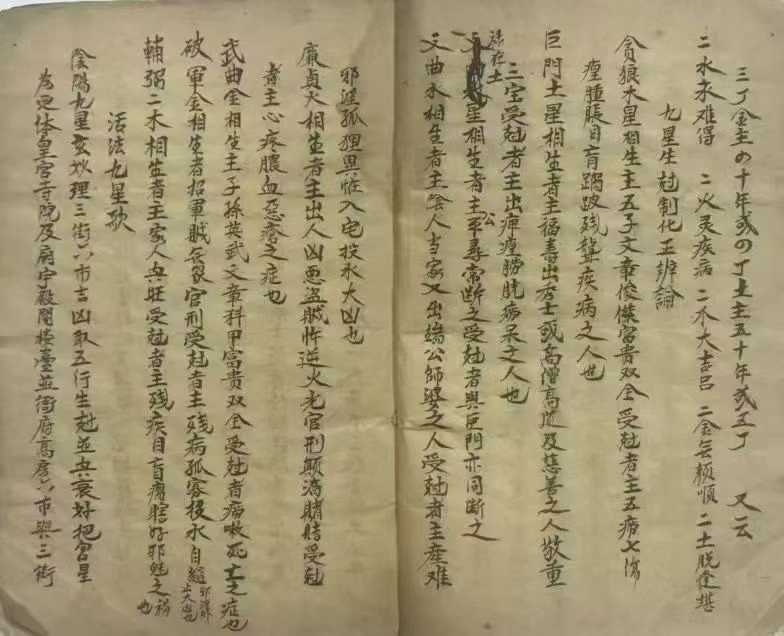 三丁金主四十年或四丁土主五十年或五丁　又云
二水永难得　二火灵疾病　二木大吉昌　二金每颓顺　二土脱
九星生尅制化正辨論
貪狼木星相生主五子文章俊傑富贵双全受尅者主五癆七傷
瘇脹目盲跛残聾疾病之人也
巨門土星相生者主福寿出秀士或高僧高道及慈善之人敬重
三宝受尅者主出痺膀胱病呆之人也
禄存土星相生者主公平尋常断之受尅者與巨門亦同断之
文曲水相生者主陰人当家又出端公師婆之人受尅者主産难
邪淫狐狸異怪入宅投水大凶也
廉貞火相生者主出人凶恶盗賊忤逆火光官刑顛滴賭受尅
者主心疼膿血惡瘡之症也
武曲金相生主子孫英武文章科甲富贵双全受尅者痨嗽死亡之症也
破軍金相生者招軍賊官刑受尅者主残病孤寡投水自縊
輔弼二木相生者主家人兴旺受尅者主残疾目盲瞎好邪魅之禍也
活法九星歌
陰陽九星玄妙理三街六市吉凶取五行生尅並兴衰好把宮星
為定体皇宮寺院及廟宇殿閣楼臺並衙府高房六市與三街